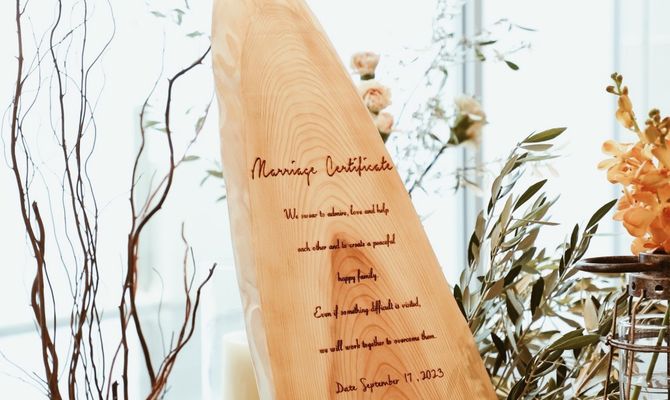 Marriage Certificate
We swear to admire, love and help
each other and to create a peaceful
happy family.
Even if something difficult is visited,
we will work together to overcome them.
Date September 17, 2023